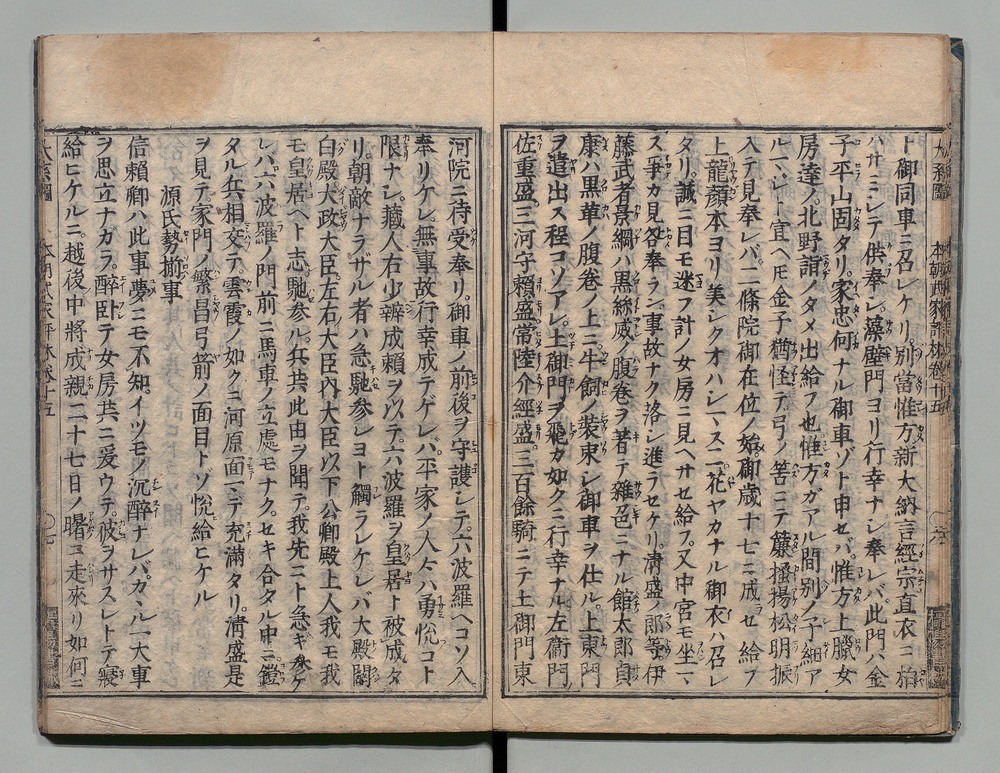 ト御同車ニ召レケリ別當惟方新大納言經宗直衣ニ柏
ハサミシテ供奉シ藻壁門ヨリ行幸ナシ奉レバ此門ハ金
子平山固タリ家忠何ナル御車ゾト申セバ惟方上臈女
房達ノ北野詣ノタメ出給フ也惟方ガアル間別ノ子細ア
ルマジト宣ヘ𪜈金子猶怪テ弓ノ筈ニテ簾搔揚松明振
入テ見奉レバ二條院御在位ノ始御歳十七ニ成ラセ給フ
上龍顔本ヨリ美シクオハシマスニ花ヤカナル御衣ハ召レ
タリ誠ニ目モ迷フ計ノ女房ニ見ヘサセ給フ又中宮モ坐マ
ス爭カ見咎奉ラン事故ナク落シ進ラセケリ淸盛ノ郎等伊
藤武者景綱ハ黒絲威ノ腹卷ヲ著テ雜色ニナル館太郎貞
康ハ黒革ノ腹卷ノ上ニ牛飼ノ裝束シ御車ヲ仕ル上東門
ヲ遣出ス程コソアレ土御門ヲ飛ガ如クニ行幸ナル左衞門
佐重盛三河守賴盛常陸介經盛三百餘騎ニテ土御門東
河院ニ待受奉リ御車ノ前後ヲ守護シテ六波羅ヘコソ入
奉リケレ無事故行幸成テゲレバ平家ノ人々ハ勇悦コト
限ナシ藏人右少辨成賴ヲ以テ六波羅ヲ皇居ト被成タ
リ朝敵ナラザル者ハ急馳參レヨト觸ラレケレバ大殿關
白殿大政大臣左右大臣内大臣以下公卿殿上人我モ我
モ皇居ヘト志馳參ル兵共此由ヲ聞テ我先ニト急ギ參ケ
レバ六波羅ノ門前ニ馬車ノ立處モナクセキ合タル甲ニ鎧
タル兵相交テ雲霞ノ如クニ河原面マデ充滿タリ淸盛是
ヲ見テ家門ノ繁昌弓箭ノ面目トゾ悦給ヒケル
源氏勢揃事
信賴卿ハ此事夢ニモ不知イツモノ沉醉ナレバカヽル一大事
ヲ思立ナガラ醉臥テ女房共ニ爰ウテ彼ヲサスレトテ寢
給ヒケルニ越後中將成親二十七日ノ曙ニ走來リ如何ニ
本朝武家評林卷十五